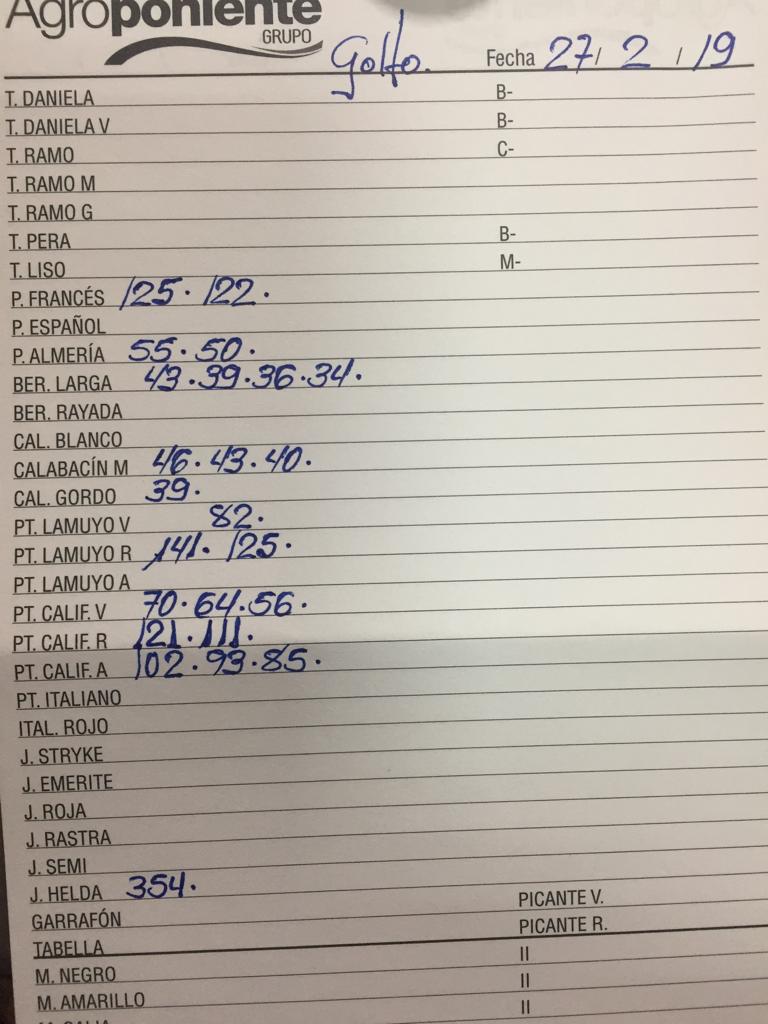 Agroponiente
GRUPO
Golfo. Fecha 27/ 2 / 19
T. DANIELA B-
T. DANIELA V B-
T. RAMO C-
T. RAMO M
T. RAMO G
T. PERA B-
T. LISO M-
P. FRANCÉS 125. 122.
P. ESPAÑOL
P. ALMERÍA 55. 50.
BER. LARGA 43. 39. 36. 34.
BER. RAYADA
CAL. BLANCO
CALABACÍN M 46. 43. 40.
CAL. GORDO 39.
PT. LAMUYO V 82.
PT. LAMUYO R 141. 125.
PT. LAMUYO A
PT. CALIF. V 70. 64. 56.
PT. CALIF. R 121. 111.
PT. CALIF. A 102. 93. 85.
PT. ITALIANO
ITAL. ROJO
J. STRYKE
J. EMERITE
J. ROJA
J. RASTRA
J. SEMI
J. HELDA 354.
GARRAFÓN PICANTE V.
TABELLA PICANTE R.
M. NEGRO II
M. AMARILLO II
II